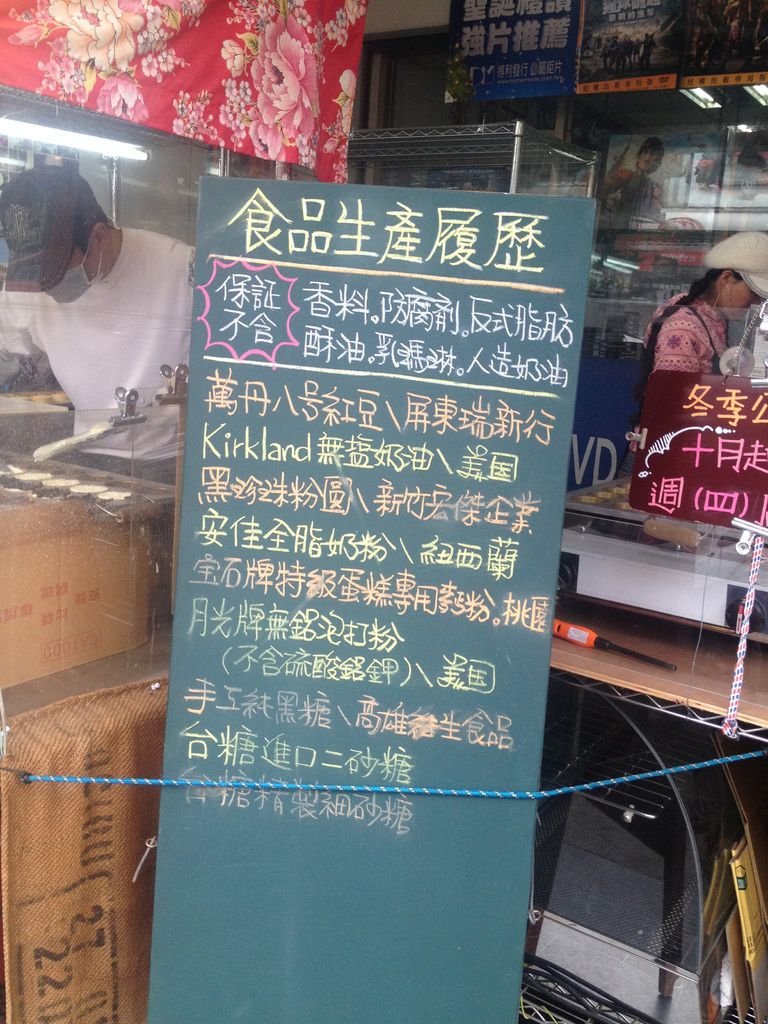 聖誕禮讚
強片推薦
得利發行 必屬鉅片
食品生產履歷
保証
不含
香料。防腐剤。反式脂肪
酥油。乳瑪琳。人造奶油
萬丹八号紅豆\屏東瑞新行
Kirkland無盐奶油\美国
黑珍珠粉圓\新竹宏傑企業
安佳全脂奶粉\紐西蘭
宝石牌特級蛋糕專用麵粉。桃園
月光牌無鋁泡打粉
(不含硫酸鋁鉀)\美国
手工純黑糖\高雄 生食品
台糖進口二砂糖
台糖精製細砂糖
冬季公
十月起
週(四)
VD